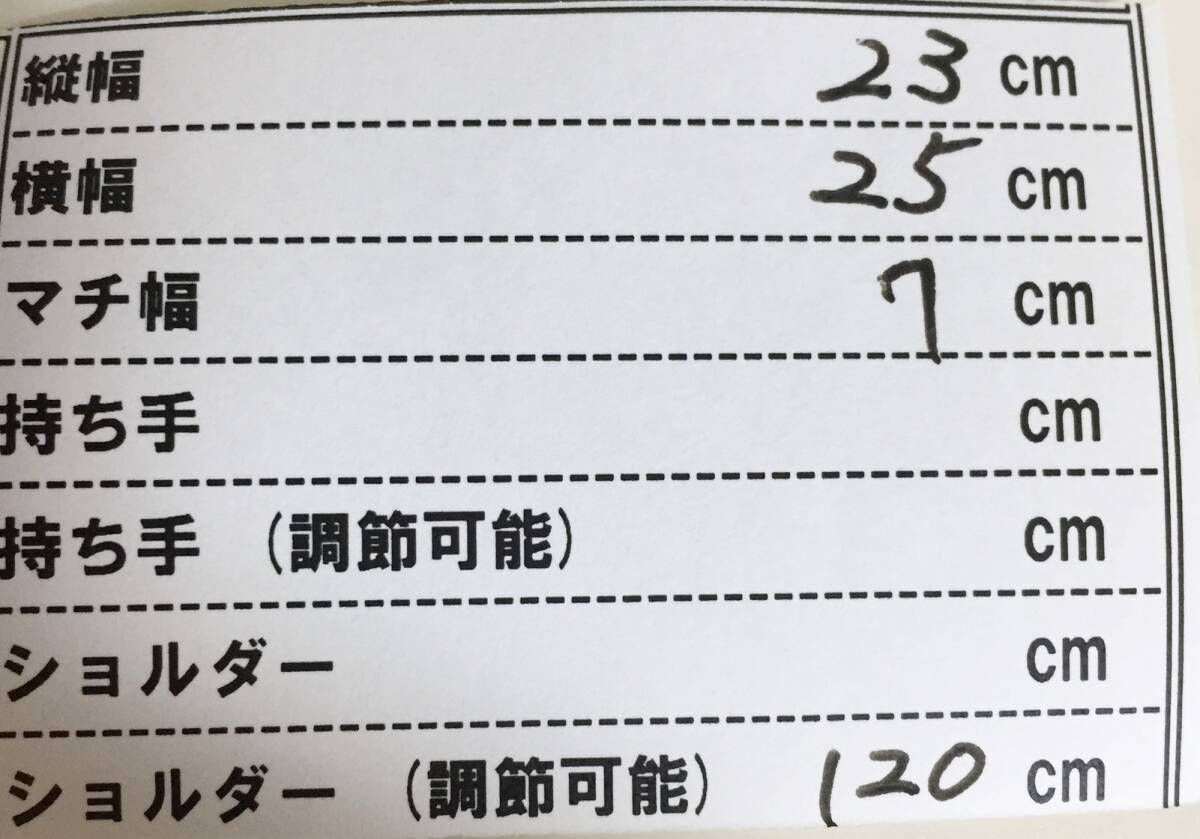 縦幅 23 cm
横幅 25 cm
マチ幅 7 cm
持ち手 cm
持ち手 (調節可能) cm
ショルダー cm
ショルダー (調節可能) 120 cm